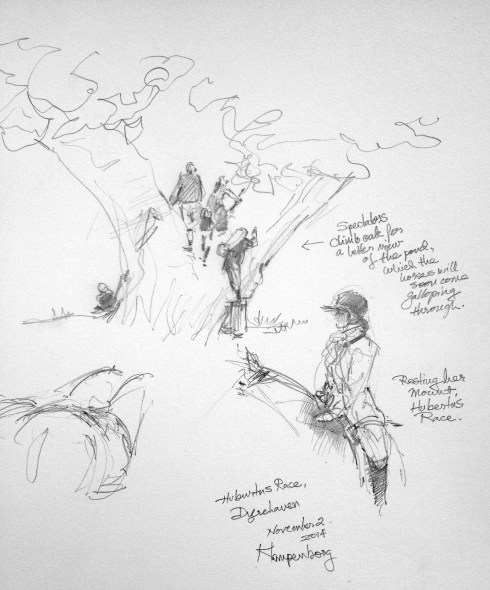 Spectators
climb oak for
a better view
of the pond,
which the
horses will
soon come
galloping
through.
Resting her
Mount,
Hubertus
Race.
Hubertus Race,
Dyrehaven
November 2
2014
Klampenborg